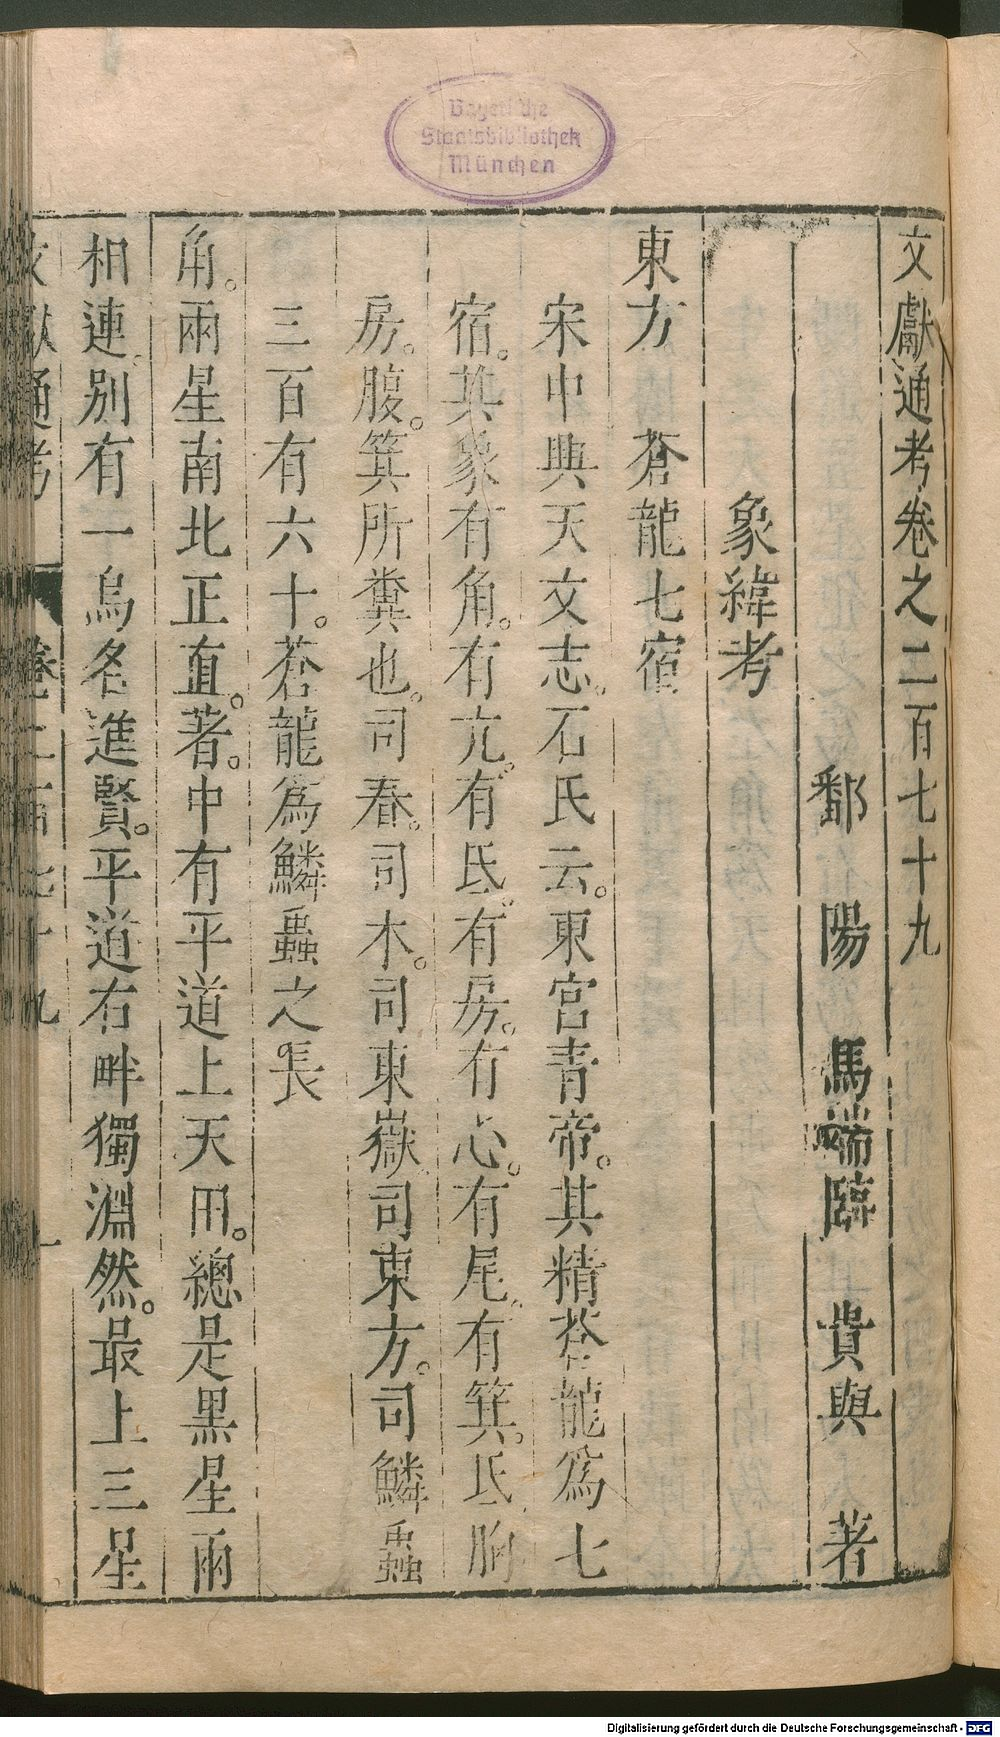 文獻通考卷之二百七十九
鄱陽 馬端臨 貴與 著
象緯考
東方 蒼龍七宿
宋中興天文志。石氏云。東宮青帝。其精蒼龍爲七
宿。其象有角。有亢。有氐。有房。有心。有尾。有箕。氐胸
房。腹。箕所糞也。司春。司木。司東嶽。司東方。司鱗蟲
三百有六十。蒼龍爲鱗蟲之長
角。兩星南北正直。著。中有平道上天田。總是黑星兩
相連。別有一烏名進賢。平道右畔獨淵然。最上三星
文獻通考 卷二百七十九 一
Bayerische
Staatsbibliothek
München
Digitalisierung gefördert durch die Deutsche Forschungsgemeinschaft - DFG